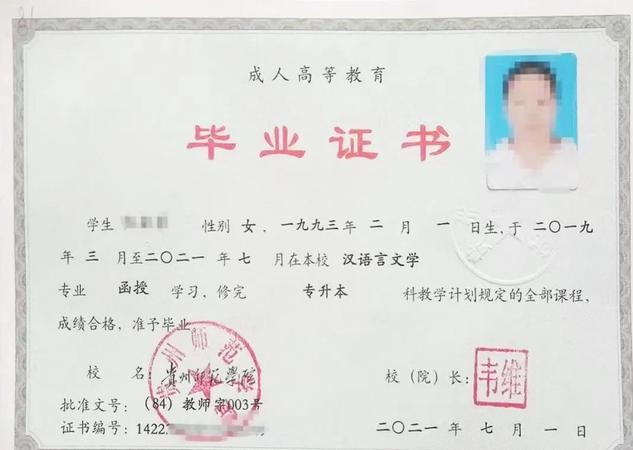 成人高等教育
毕业证书
学生 性别 女，一九九三年 二 月 一 日生，于 二〇一九
年 三 月至二〇二一 年 七 月在本校 汉语言文学
专业 函授 学习，修完 专升本 科教学计划规定的全部课程，
成绩合格，准予毕业。
校 名：贵州师范学院
校（院）长：韦维
批准文号：（84）教师字003号
证书编号：1422
二〇二一 年 七 月 一 日